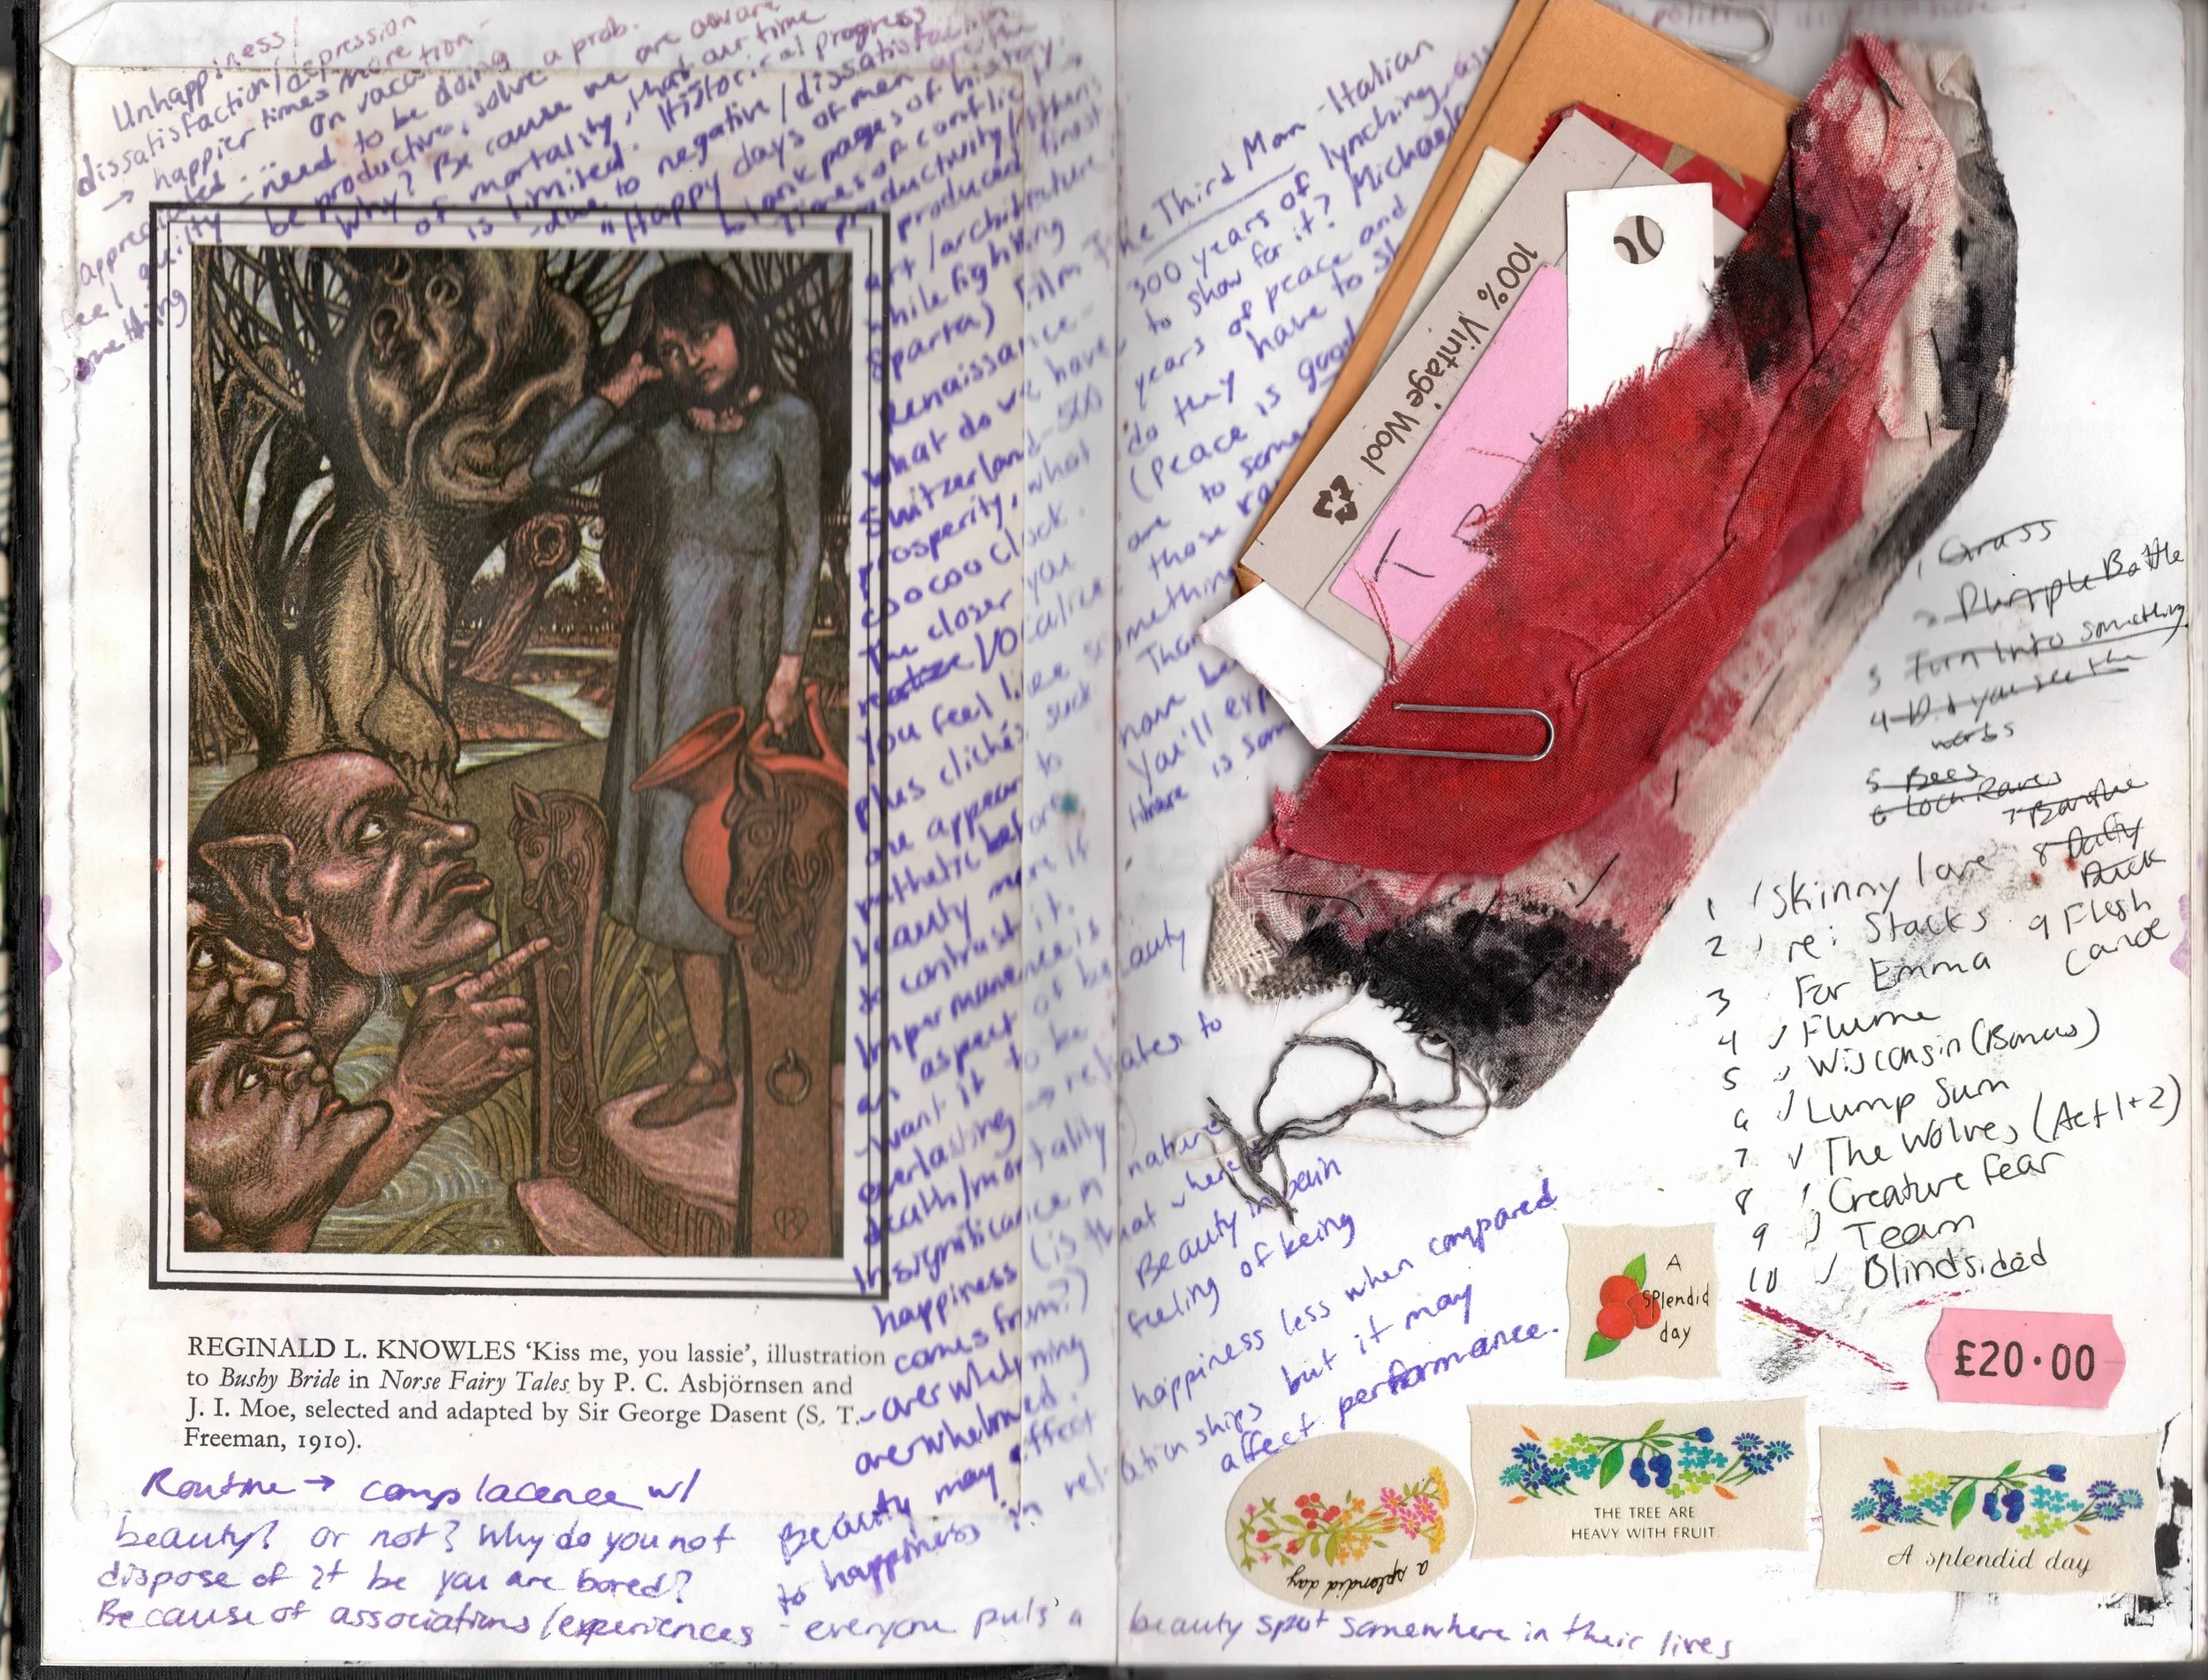 Unhappiness/
dissatisfaction/depression
→ happier times more
appreciated... On vacation
feel guilty - need to be doing
something be productive, solve a prob.
Why? Because we are aware
of mortality, that our time
is limited. Historical progress
-due to negative/dissatisfaction
"Happy days of men are the
blank pages of history"
Times of conflict →
productivity (Athens
produced finest
art/architecture
while fighting
Sparta) Film The Third Man - Italian
Renaissance - 300 years of lynching
What do we have to show for it? Michael
Switzerland - 500 years of peace and
prosperity, what do they have to
coocoo clock. (peace is good
The closer you are to
realize/vocalize those
you feel like something
plus clichés suck. Than
are appear to now
pathetic before You'll
beauty more if there is
to contrast it.
Impermanence is
an aspect of beauty
-want it to be
everlasting → relates to
death/mortality
Insignificance in nature
happiness (is that where
comes from?) Beauty in pain
-overwhelming feeling of being
overwhelmed.
Beauty may effect happiness less when compared
to happiness in relationships but it may
affect performance.
REGINALD L. KNOWLES 'Kiss me, you lassie', illustration
to Bushy Bride in Norse Fairy Tales by P. C. Asbjörnsen and
J. I. Moe, selected and adapted by Sir George Dasent (S. T.
Freeman, 1910).
Routine → complacence w/
beauty? or not? Why do you not
dispose of it bc you are bored?
Because of associations/experiences - everyone puts a beauty spot somewhere in their lives
100% Vintage Wool
T
1 Grass
2 Purple Bottle
3 Turn Into something
4 Did you see the
words
5 Bees
6 Loch Raven
7 Banshee
8 Daffy
Duck
9 Flesh
Canoe
1 Skinny love
2 re: Stacks
3 For Emma
4 Flume
5 Wisconsin (Bonus)
6 Lump Sum
7 The Wolves (Act 1+2)
8 Creature Fear
9 Team
10 Blindsided
A
splendid
day
£20.00
a splendid day
THE TREE ARE
HEAVY WITH FRUIT.
A splendid day